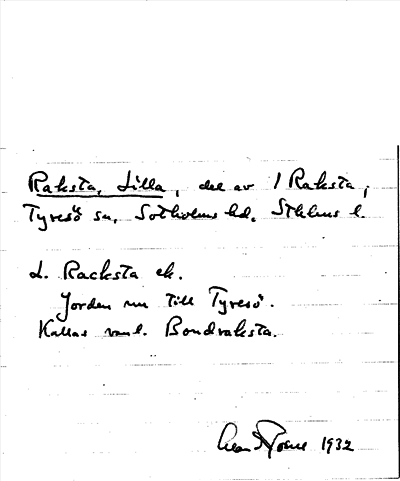 Raksta, Lilla, del av 1 Raksta,
Tyresö sn, Sotholms hd. Sthlms l.
L. Racksta ek.
Jorden nu till Tyresö.
Kallas vanl. Bondraksta.
1932